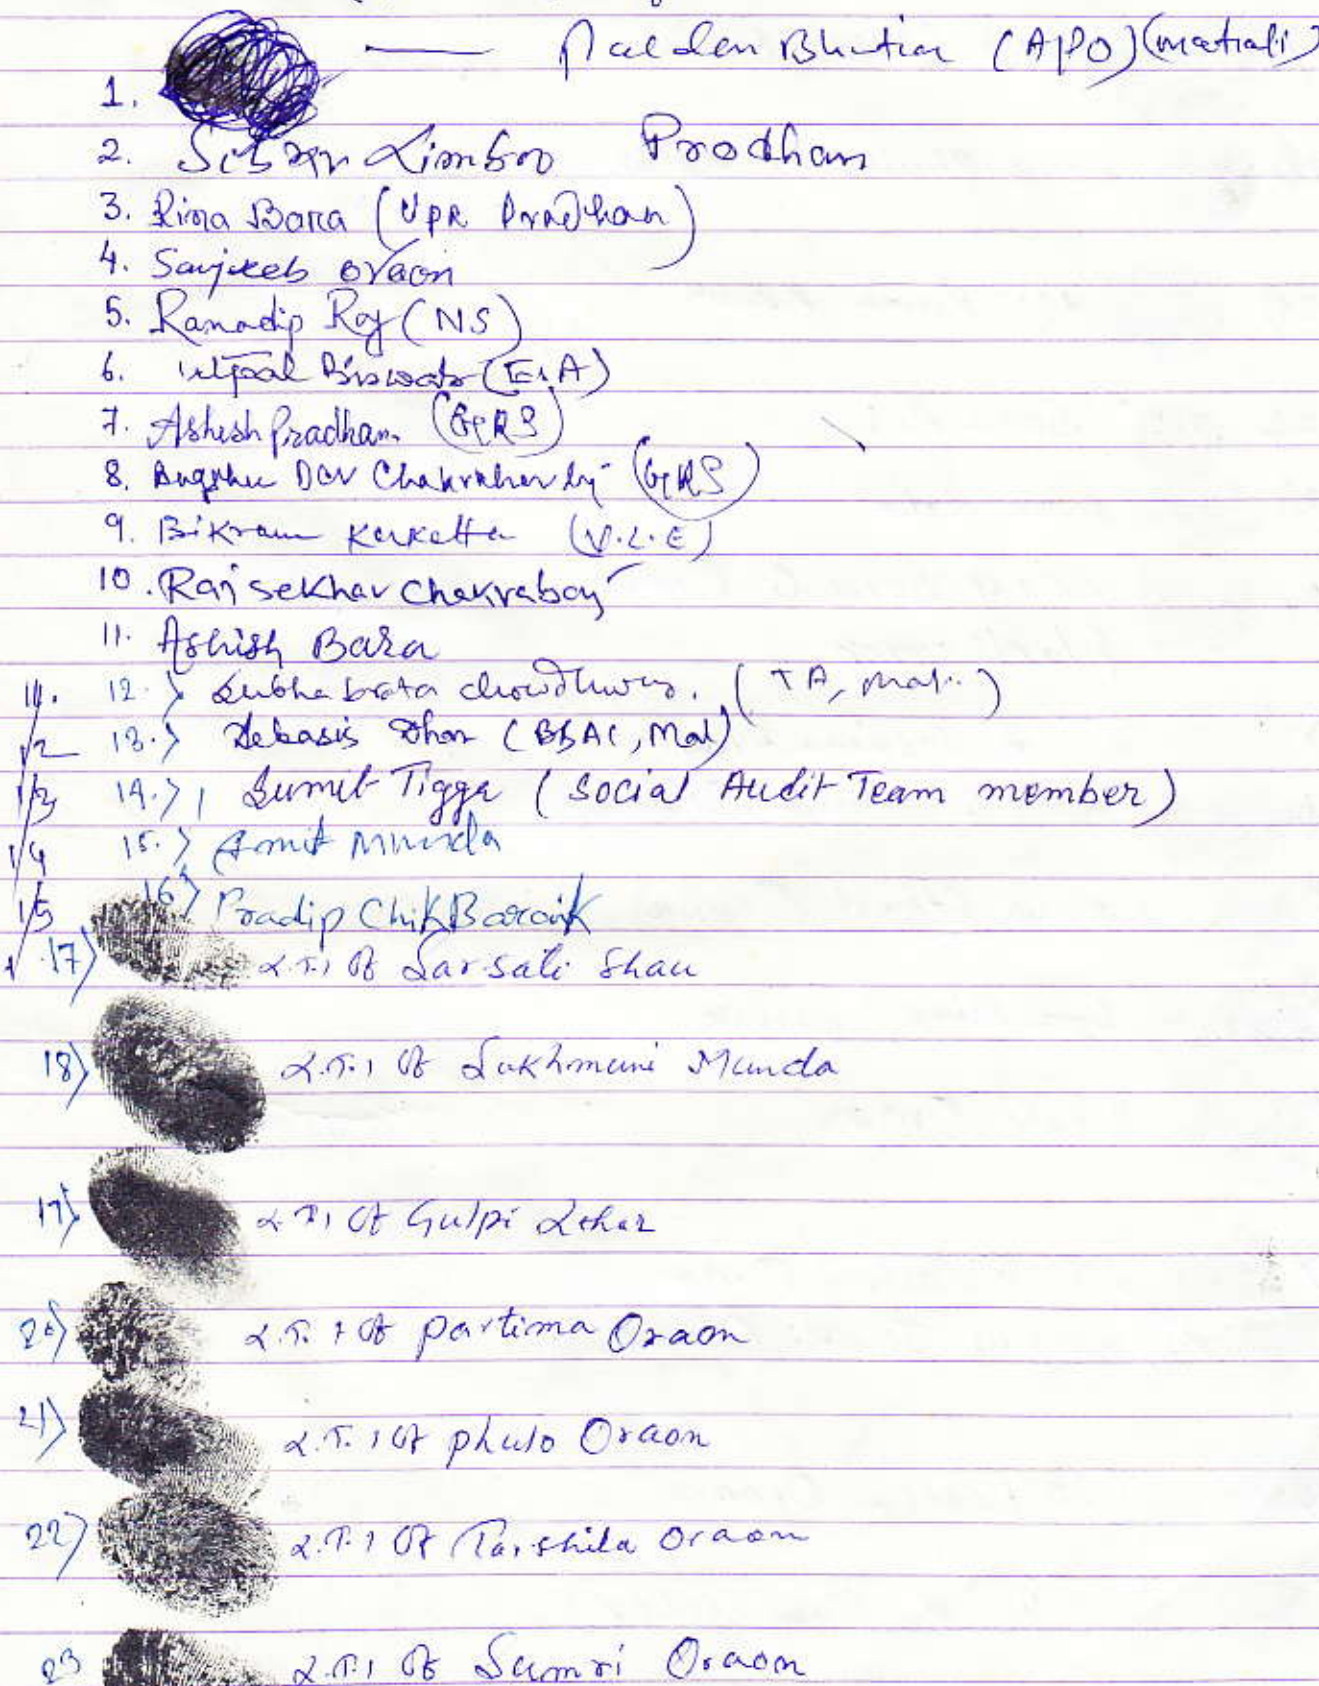 1. — Palden Bhutia (APO) (Matiali)
2. Limboo Prodhan
3. Rina Bara (Upa Pradhan)
4. Sanjeeb Oraon
5. Ranadip Roy (NS)
6. Utpal Biswas (E.A)
7. Ashesh Pradhan (GRS)
8. Dev Chakraborty (GRS)
9. Bikram Kerketta (V.L.E)
10. Raj sekhar Chakraborty
11. Ashish Bara
11. 12.) Subha brata chowdhury. (TA, Mal..)
12 13.) Debasis Dhar (BSAC, Mal)
13 14.) Sumit Tigga (Social Audit Team member)
14 15.) Amit Munda
15 16) Pradip Chik Baraik
17) L.T.I of Sarsati Shau
18) L.T.I of Sukhmuni Munda
19) L.T.I of Gulpi Lohar
20) L.T.I of partima Oraon
21) L.T.I of phulo Oraon
22) L.T.I of Tarshila Oraon
23 L.T.I of Sumri Oraon